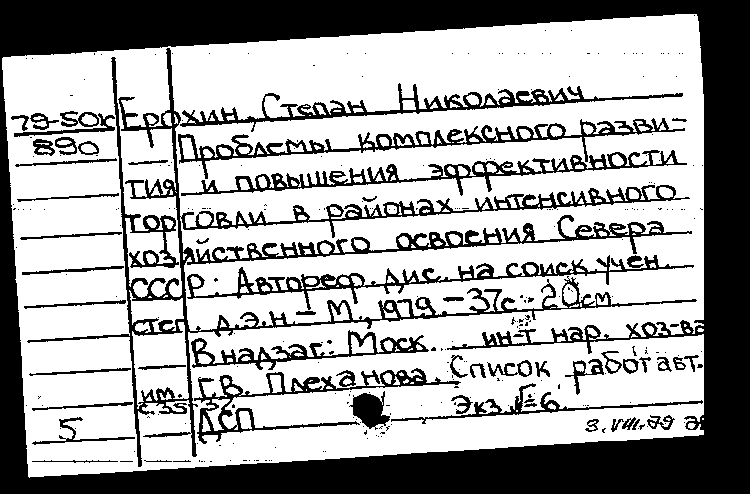 79-50к Ерохин, Степан Николаевич.
890 Проблемы комплексного разви-
тия и повышения эффективности
торговли в районах интенсивного
хозяйственного освоения Севера
СССР: Автореф. дис. на соиск. учен.
степ. д.э.н. - М., 1979. - 37с. 20см.
В надзаг: Моск. ин-т нар. хоз-ва
им. Г.В. Плеханова. Список работ авт.
с. 35-37 Экз. №6.
5 ДСП 3.VIII.79